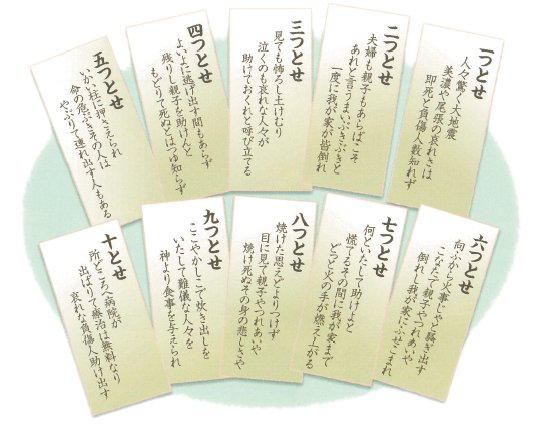 一つとせ
人々驚く大地震
美濃や尾張の哀れさは
即死と負傷人数知れず
二つとせ
夫婦も親子もあらばこそ
あれと言うまいぶきぶきと
一度に我が家が皆倒れ
三つとせ
見ても怖ろし土けむり
泣くのも哀れな人々が
助けておくれと呼び立てる
四つとせ
よいよに逃げ出す間もあらず
残りし親子を助けんと
もどりて死ぬとはつゆ知らず
五つとせ
いかい柱に押さえられ
命の危ぶきその人は
やぶりて連れ出す人もある
六つとせ
向ふから火事じゃと騒ぎ出す
こなたで親子やつれあいや
倒れし我が家にふせこまれ
七つとせ
何といたして助けよと
慌てるその間に我が家まで
どっと火の手が燃え上がる
八つとせ
焼けた思えどよりつけず
目に見て親子やつれあいや
焼け死ぬその身の悲しさや
九つとせ
ここやかしこで炊き出しを
いたして難儀な人々を
神より食事を与えられ
十とせ
所どころへ病院が
出ばりて療治は無料なり
哀れな負傷人助け出す